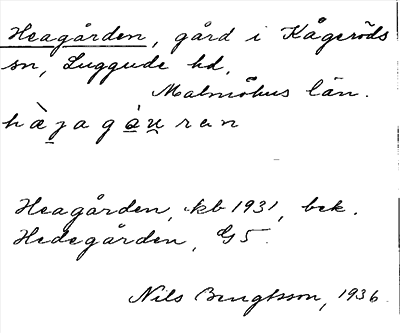 Heagården, gård i Kågeröds
sn, Luggude hd,
Malmöhus län.
hæ̀jagàu̯ren
Heagården, kb 1931, bek.
Hedegården, G5.
Nils Bengtsson, 1936.